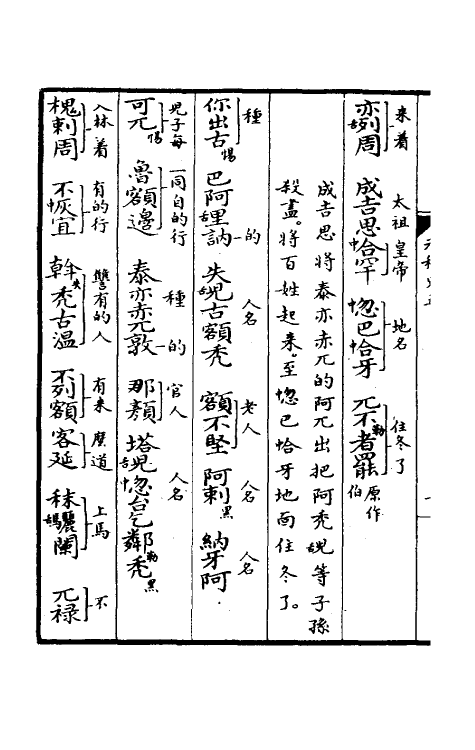 来着 太祖皇帝 地名 住冬了
亦舌列周 成吉思中合罕 忽巴中合牙 兀不勒者罷 原作伯
成吉思將泰亦赤兀的阿兀出把阿禿兒等子孫
殺盡。將百姓起来。至忽巴合牙地面住冬了。
種 的 人名 老人 人名 人名
你出古惕 巴阿舌里訥 失舌兒古額禿 額不堅 阿剌黑 納牙阿
兒子每 一同自的行 種的 官人 人名
可兀惕 魯額邊 泰亦赤兀敦 那顏 塔舌兒中忽台乞鄰勒禿黑
入林着 有的行 讐有的人 有来 麼道 上馬 不
槐剌周 不中恢宜 斡失禿古溫 不列額 客延 秣驪闌 兀禄